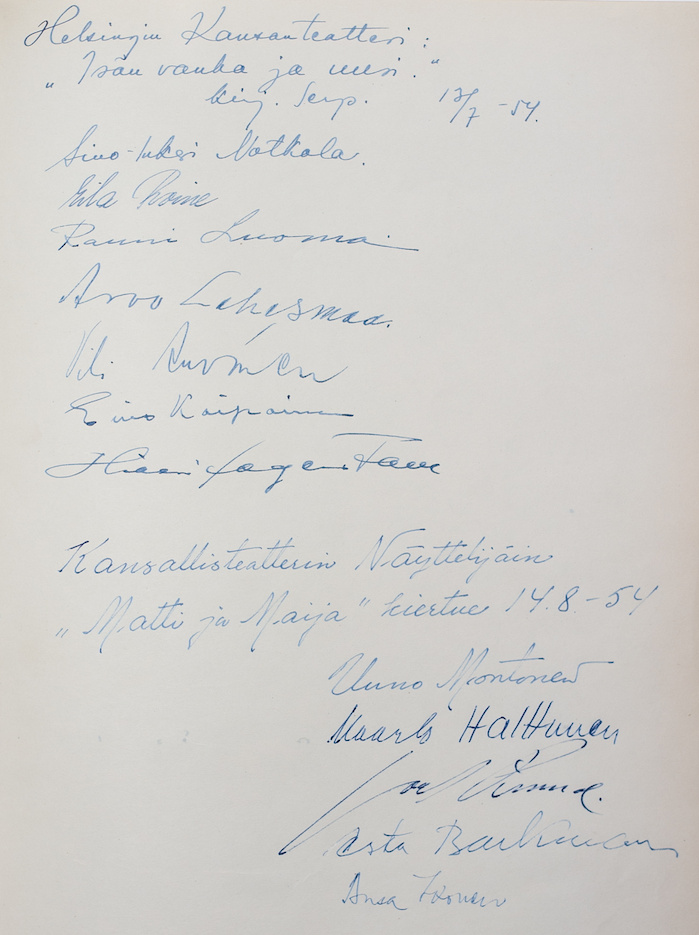 Helsingin Kansanteatteri:
"Isän vanha ja uusi."
kirj. Serp. 13/7 -54.
Notkola.
Eila Roine
Rauni Luoma
Arvo Lehesmaa.
Vili Auvinen
Eino Kaipainen
Kansallisteatterin Näyttelijäin
"Matti ja Maija" kiertue 14.8.-54
Uuno Montonen
Kaarlo Halttunen
Joel Rinne.
Asta Backman
Ansa Ikonen